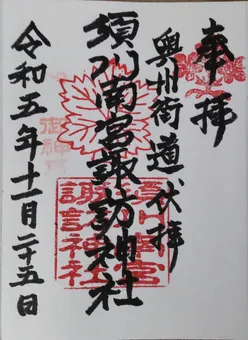 奉拝
奥州街道、伏拝
須川南宮諏訪神社
令和五年十一月二十五日
須川南宮
諏訪神社